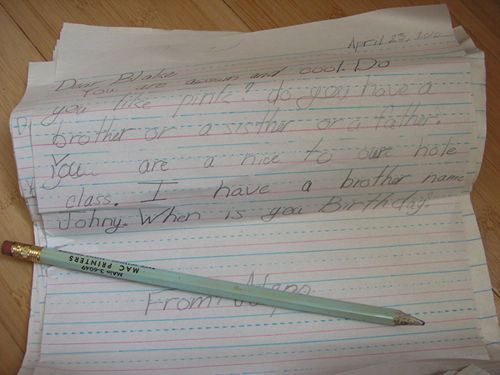 April 25, 2012
Dear Blake
You are awsom and cool. Do
you like pink? do you have a
brother or a sisther or a father
You are a nice to oure hole
class. I have a brother name
Johny. When is you Birthday.
From:
MAIN 3-6049
MAC PRINTERS